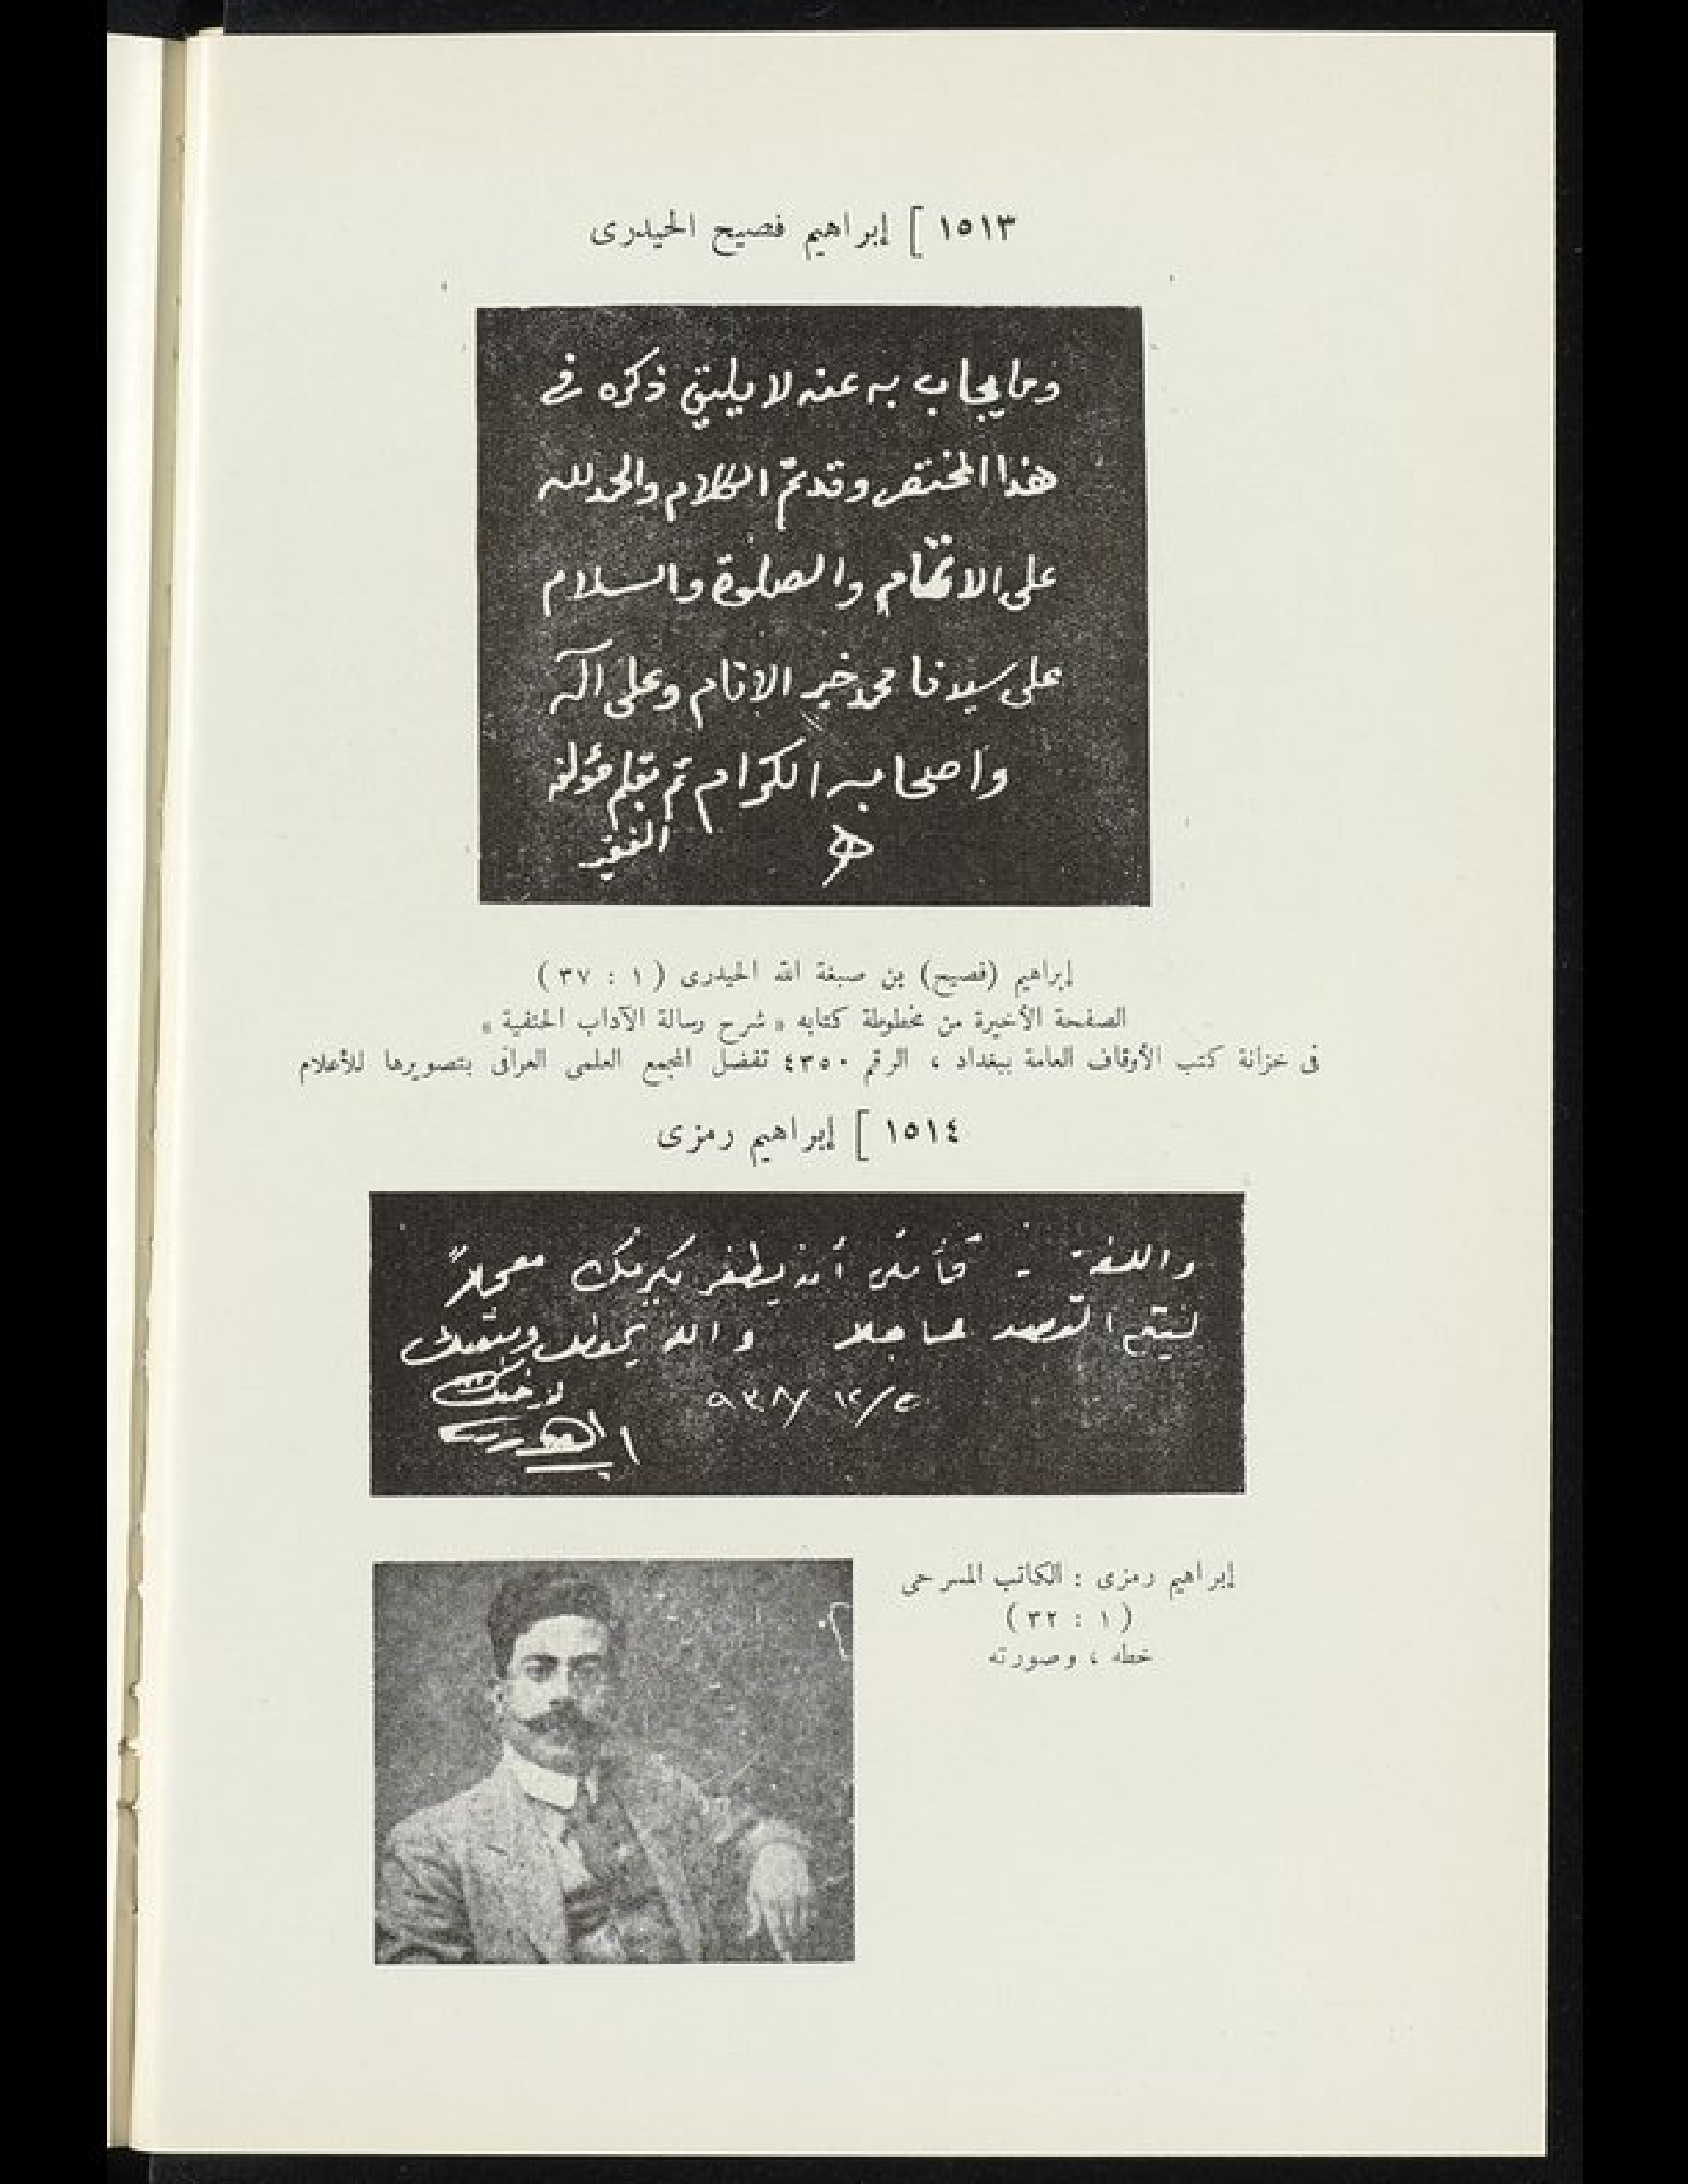 ١٥١٣ [ إبراهيم فصيح الحيدرى
وما يجاب به عنه لا يليق ذكره في
هذا المختصر وقد تمّ الكلام والحمد لله
على الاتمام والصلوة والسلام
على سيدنا محمد خير الانام وعلى آله
واصحابه الكرام تم بقلم مؤلفه
الفقير
إبراهيم (فصيح) بن صبغة الله الحيدرى ( ١ : ٣٧ )
الصفحة الأخيرة من مخطوطة كتابه « شرح رسالة الآداب الحنفية »
فى خزانة كتب الأوقاف العامة ببغداد ، الرقم ٤٣٥٠ تفضل المجمع العلمى العراقى بتصويرها للأعلام
١٥١٤ [ إبراهيم رمزى
واللغة - فأملى أن يظفر بكرمك معجلاً
ليتم القصد عاجلا والله يحفظك ويبقيك
٥/١٢/٩٣٨
إبراهيم رمزى : الكاتب المسرحى
( ١ : ٣٢ )
خطه ، وصورته